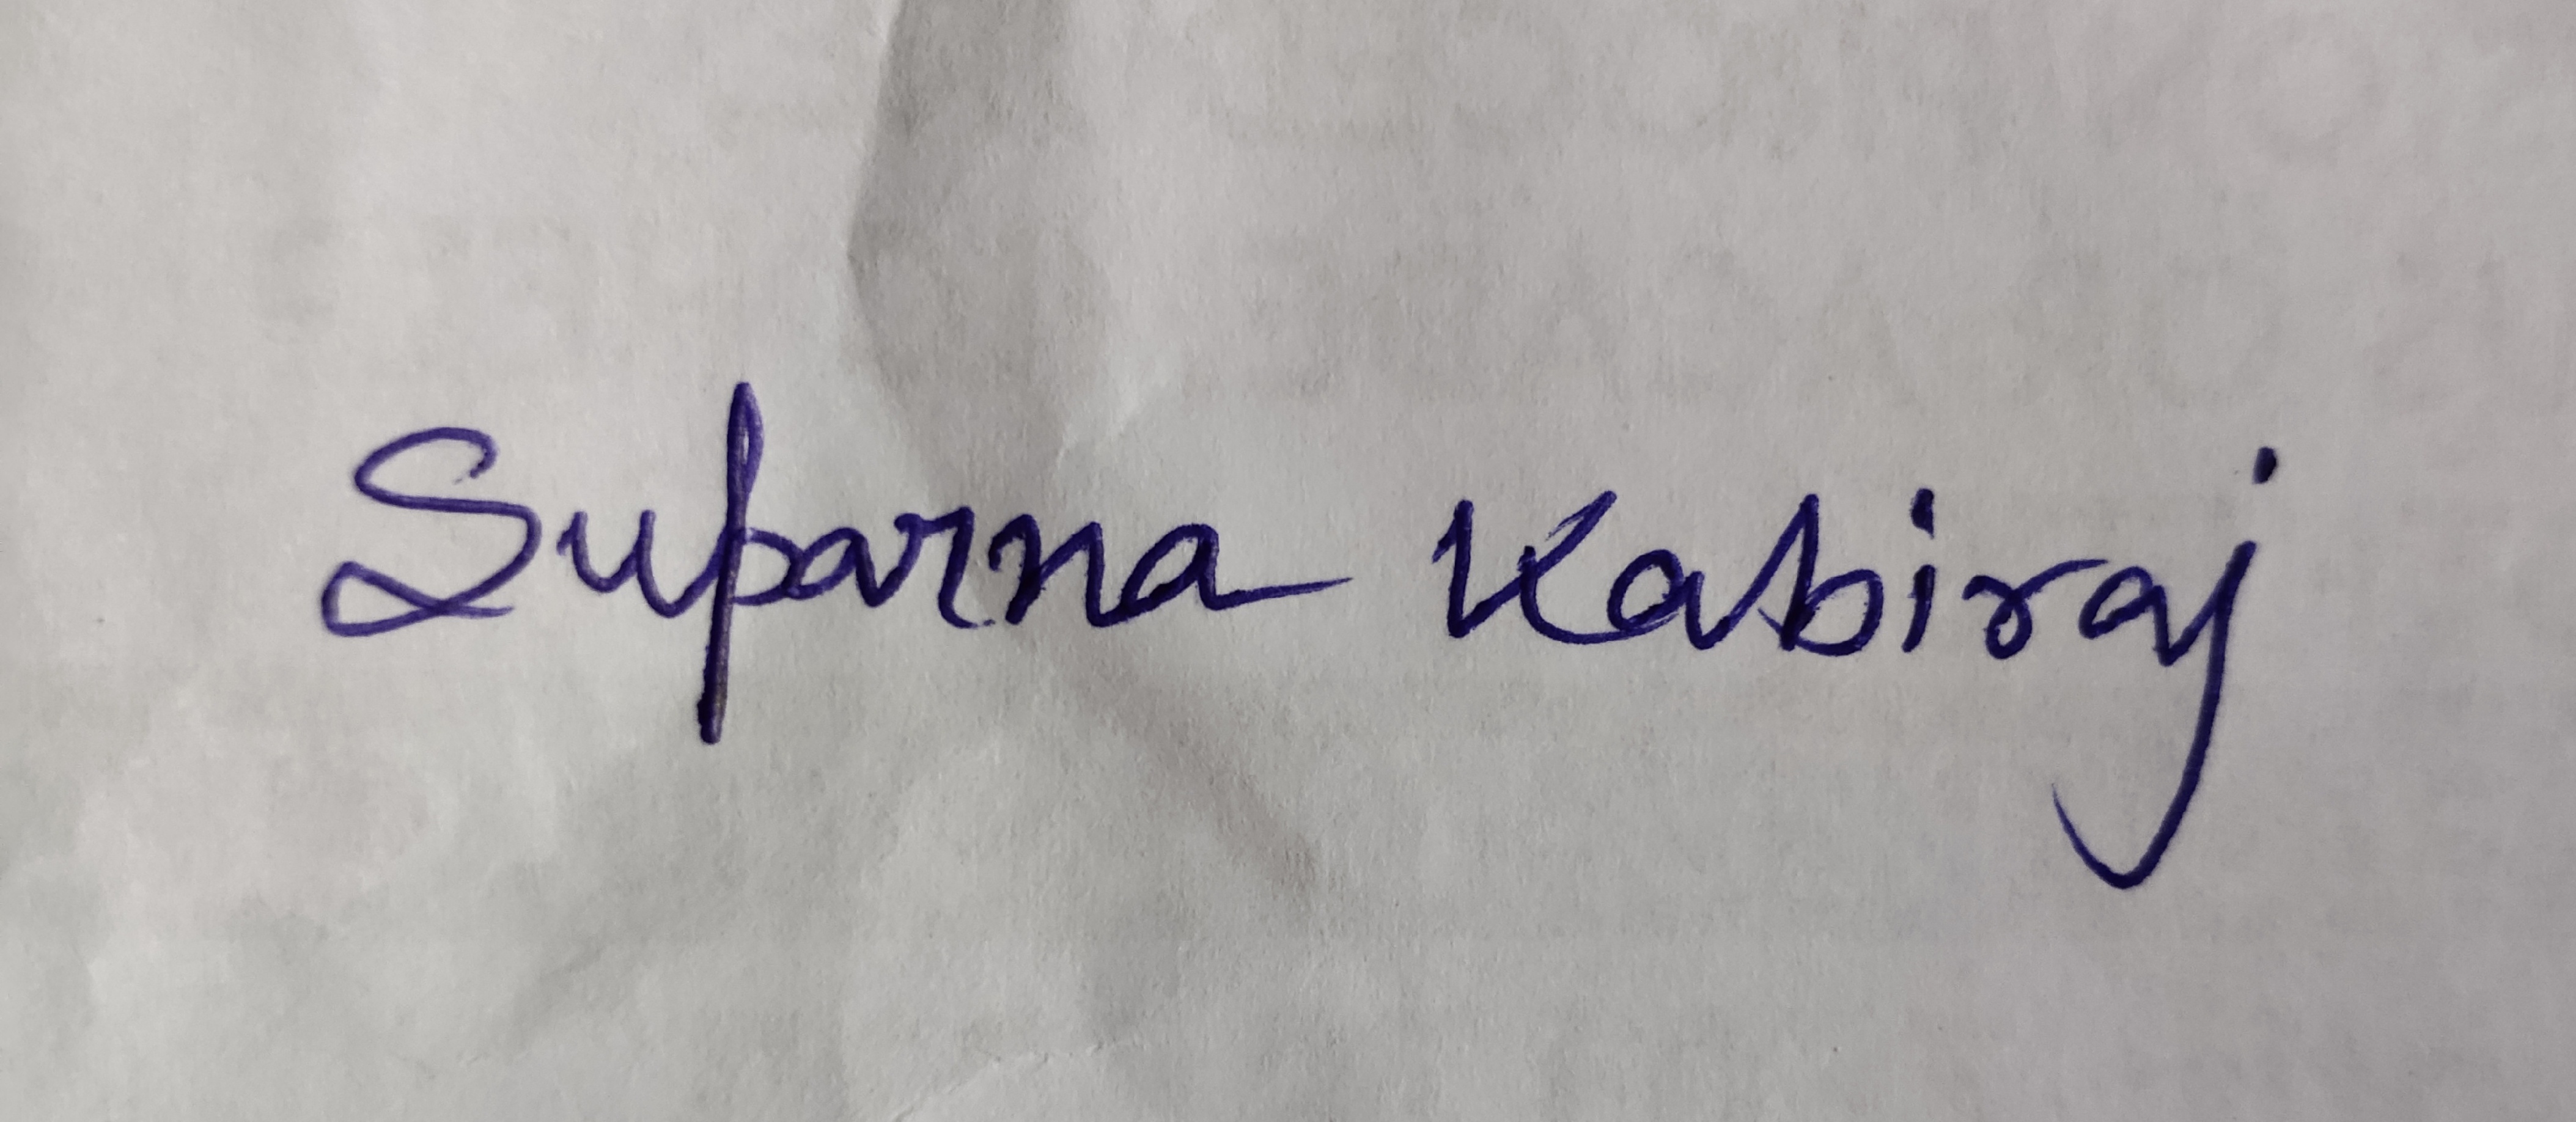 Suparna Kabiraj